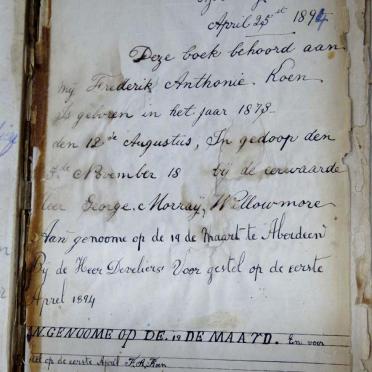 April 25st 1894
Deze boek behoord aan
mÿ Frederik Anthonie. Koen
als geboren in het jaar 1873
den 12de Augustus, In gedoop den
de November 18 bÿ de eerwaarde
George. Morraÿ, Willowmore
Aan genoome op de 19 de Maart te Aberdeen
Bÿ de Heer Develiers Voor gestel op de eerste
Aprel 1894
AN.GENOOME OP DE. 19 DE MAATD. En voor
stel op de eerste April F.A. Koen